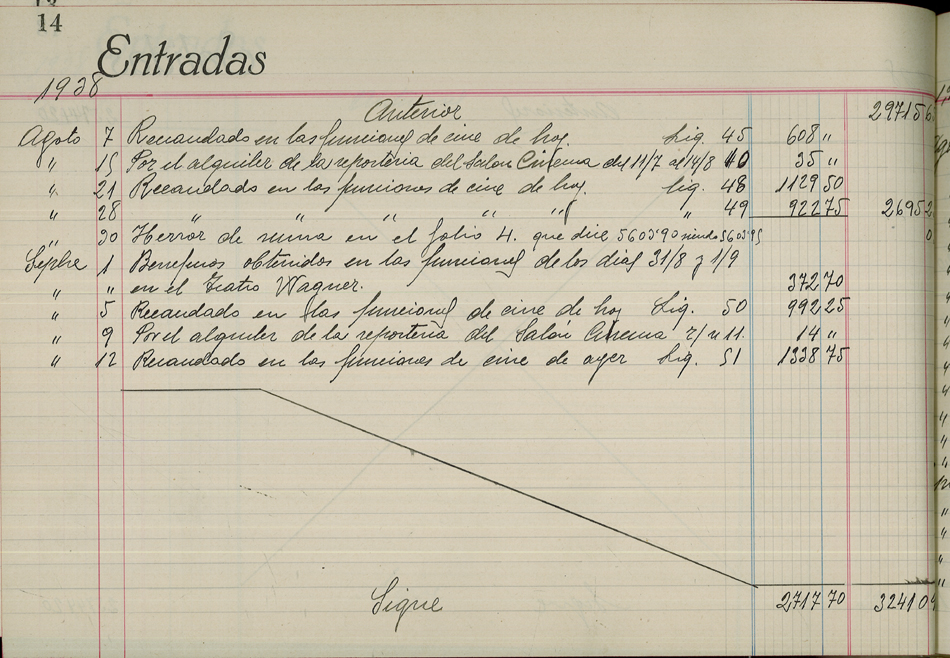 14
Entradas
1938
Anterior 29715 6
Agoto 7 Recaudado en las funciones de cine de hoy. Liq. 45 608 "
" 15 Por el alquiler de la reposteria del Salon Cinema del 11/7 al 14/8 40 35 "
" 21 Recaudado en las funciones de cine de hoy. liq. 48 1129 50
" 28 " " " " " " 49 922 75 2695 2
" 30 Herror de suma en el folio 4. que dice 5603'90 siendo 5603'95 0
Sepbre 1 Beneficios obtenidos en las funciones de los dias 31/8 y 1/9
" " en el Teatro Wagner. 372 70
" 5 Recaudado en las funciones de cine de hoy Liq. 50 992 25
" 9 Por el alquiler de la reposteria del Salón Cinema r/ n 11. 14 "
" 12 Recaudado en las funciones de cine de ayer Liq. 51 1338 75
Sigue 2717 70 32410 9